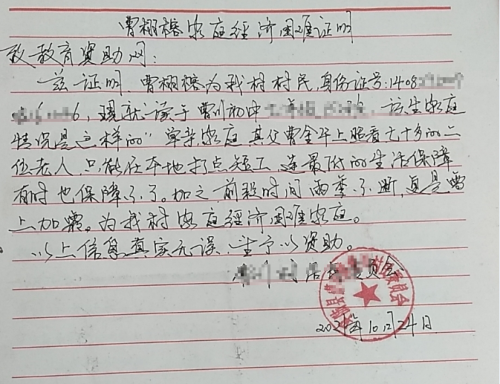 曹栩榕家庭经济困难证明
致教育资助网:
兹证明,曹栩榕为我村村民,身份证号:1408
6,现就读于曹川初中 ,该生家庭
情况是这样的:单亲家庭,其父曹金平上照看七十多的二
位老人,只能在本地打点短工,连最低的生活保障
有时也保障不了。加之前段时间雨季不断,真是雪
上加霜。为我村家庭经济困难家庭。
以上信息真实无误,望予以资助。
2021年10月24日